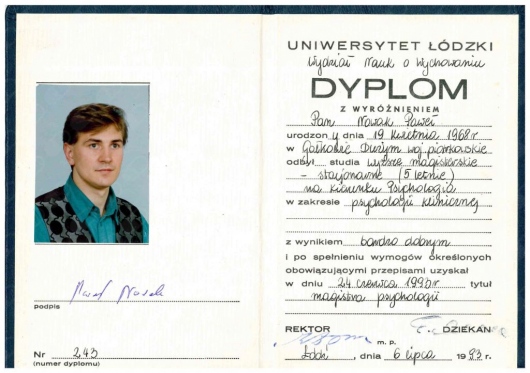 Paweł Nowak
podpis
Nr 243
(numer dyplomu)
UNIWERSYTET ŁÓDZKI
Wydział Nauk o Wychowaniu
DYPLOM
Z WYRÓŻNIENIEM
Pan Nowak Paweł
urodzony dnia 19 kwietnia 1968 r
w Gałkowie Dużym woj piotrkowskie
odbył studia wyższe magisterskie
- stacjonarne (5 letnie)
na kierunku Psychologia
w zakresie psychologii klinicznej
z wynikiem bardzo dobrym
i po spełnieniu wymogów określonych
obowiązującymi przepisami uzyskał
w dniu 24 czerwca 1993 r tytuł
magistra psychologii
REKTOR DZIEKAN
m. p.
Łódź, dnia 6 lipca 1993 r.